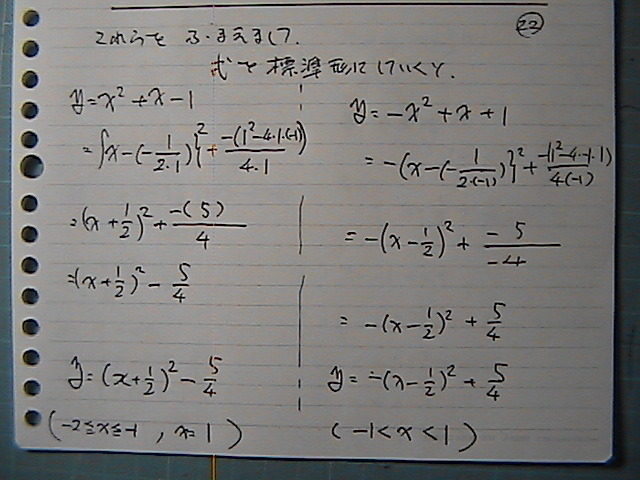 22
これらを ふまえまして、
式を標準形にしていくと、
y=x²+x-1
={x-(-1/(2·1))}²+(-(1²-4·1·(-1)))/(4·1)
=(x+1/2)²+(-(5))/4
=(x+1/2)²-5/4
y=(x+1/2)²-5/4
(-2≦x≦-1, x=1)
y=-x²+x+1
=-{x-(-1/(2·(-1)))}²+(-(1²-4·-1·1))/(4(-1))
=-(x-1/2)²+(-5)/(-4)
=-(x-1/2)²+5/4
y=-(x-1/2)²+5/4
(-1<x<1)